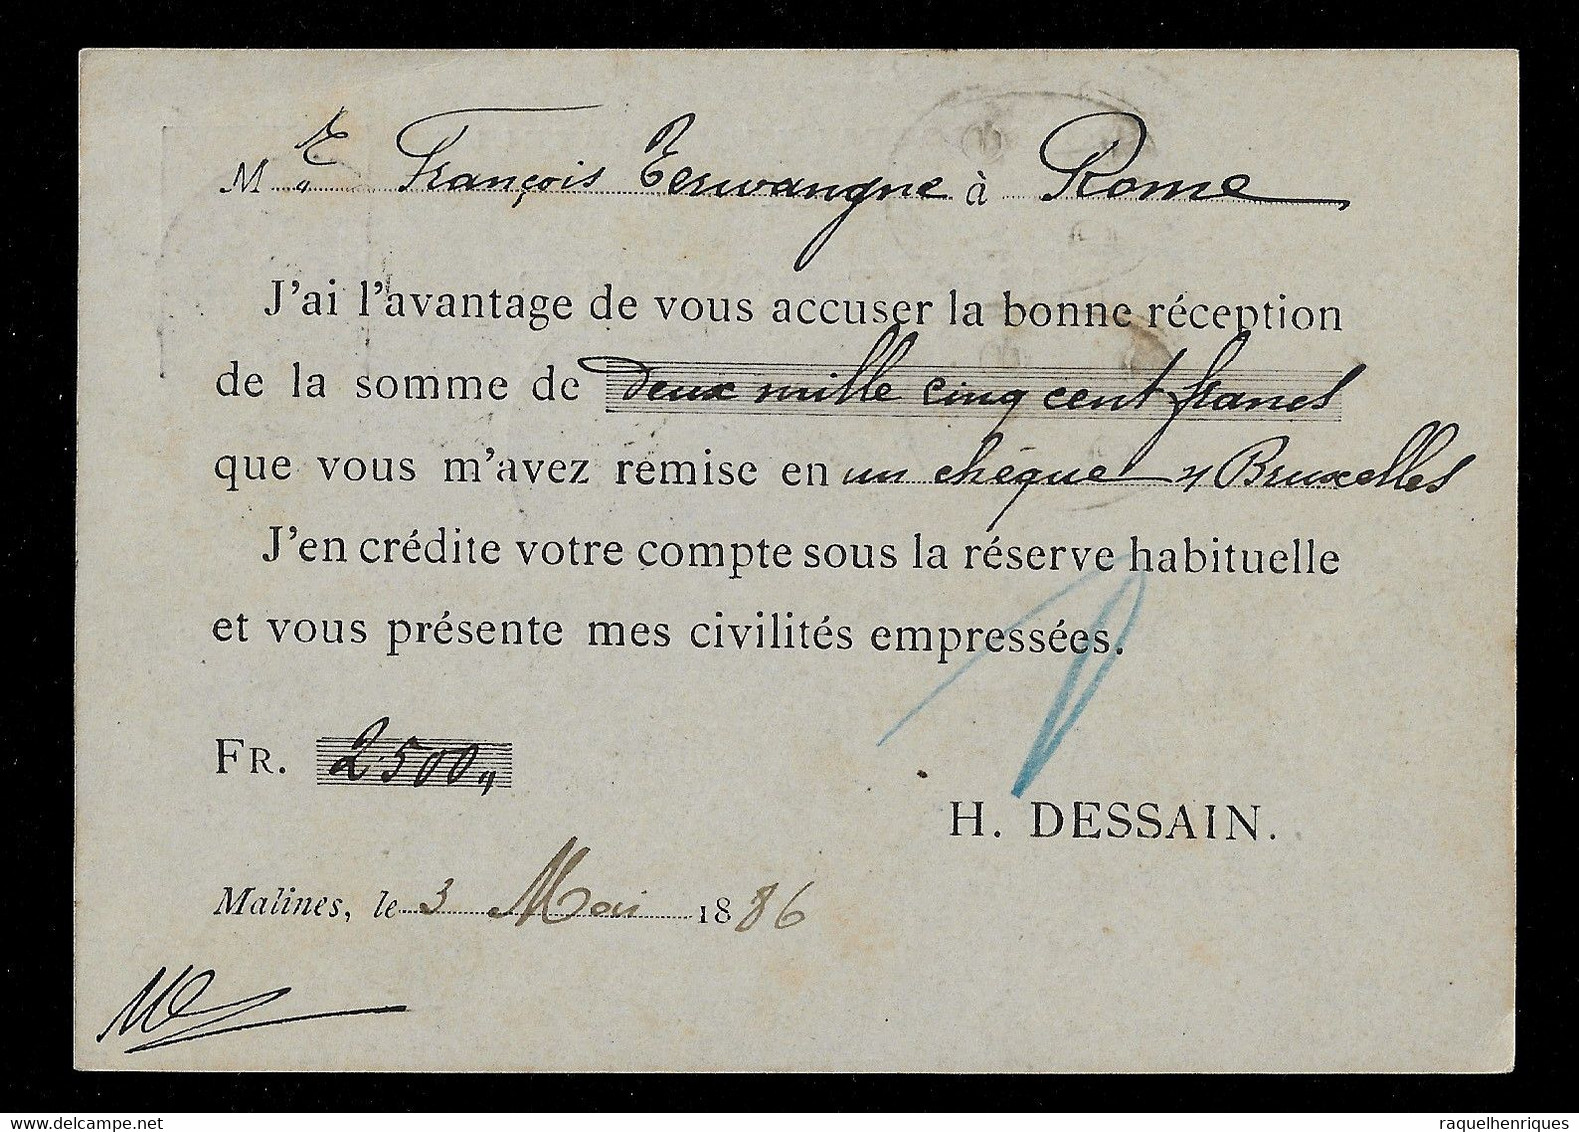 M E François Terwangne à Rome
J'ai l'avantage de vous accuser la bonne réception
de la somme de deux mille cinq cent francs
que vous m'avez remise en un chéque s/ Bruxelles
J'en crédite votre compte sous la réserve habituelle
et vous présente mes civilités empressées.
FR. 2500 „
H. DESSAIN.
Malines, le 3 Mai 1886
raquelhenriques